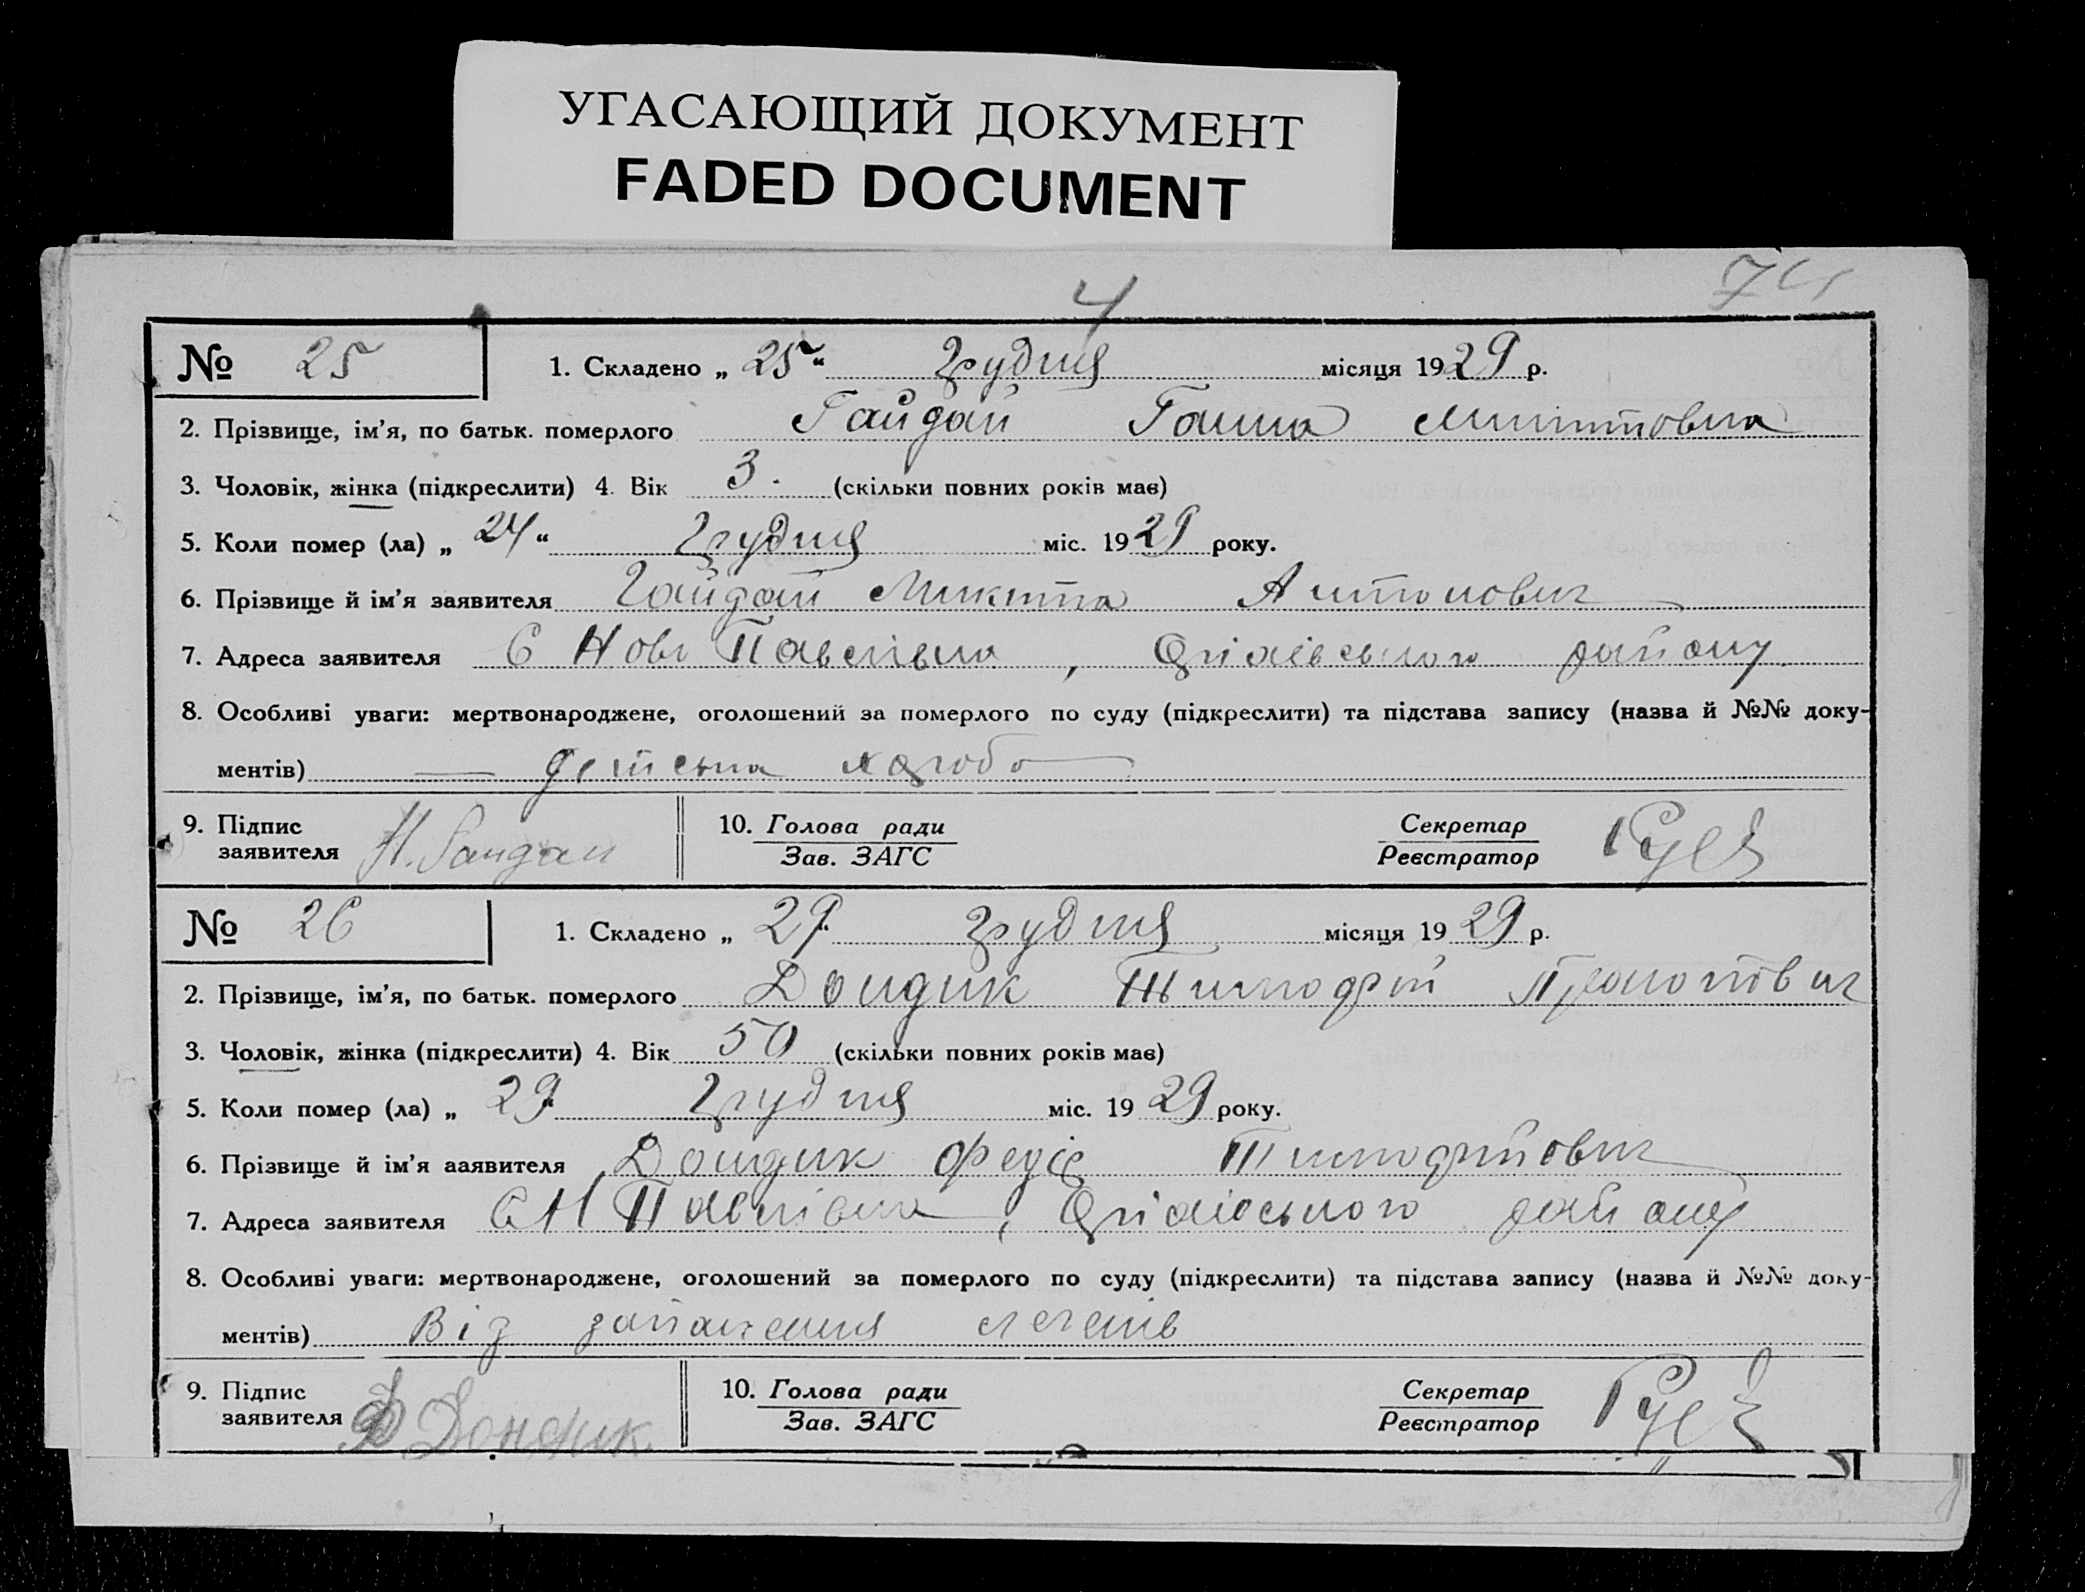 УГАСАЮЩИЙ ДОКУМЕНТ
FADED DOCUMENT
4
74
№ 25 1. Складено „ 25 “ грудня місяця 1929 р.
2. Прізвище, ім’я, по батьк. померлого Гайдай Ганна Микитовна
3. Чоловік, жінка (підкреслити) 4. Вік 3. (скільки повних років має)
5. Коли помер (ла) „ 24 “ грудня міс. 1929 року.
6. Прізвище й ім’я заявителя Гайдай Микита Антонович
7. Адреса заявителя С Ново Павлівка, району
8. Особливі уваги: мертвонароджене, оголошений за померлого по суду (підкреслити) та підстава запису (назва й №№ доку-
ментів) — детська хороба —
9. Підпис 10. Голова ради Секретар
заявителя Гайдай Зав. ЗАГС Реєстратор
№ 26 1. Складено „ 29 грудня місяця 1929 р.
2. Прізвище, ім’я, по батьк. померлого Дондик Тимофій
3. Чоловік, жінка (підкреслити) 4. Вік 50 (скільки повних років має)
5. Коли помер (ла) „ 29 грудня міс. 1929 року.
6. Прізвище й ім’я заявителя Дондик Тимофійович
7. Адреса заявителя С Н Павлівка, району
8. Особливі уваги: мертвонароджене, оголошений за померлого по суду (підкреслити) та підстава запису (назва й №№ доку-
ментів) Від запалення легенів
9. Підпис 10. Голова ради Секретар
заявителя Ф Дондик Зав. ЗАГС Реєстратор